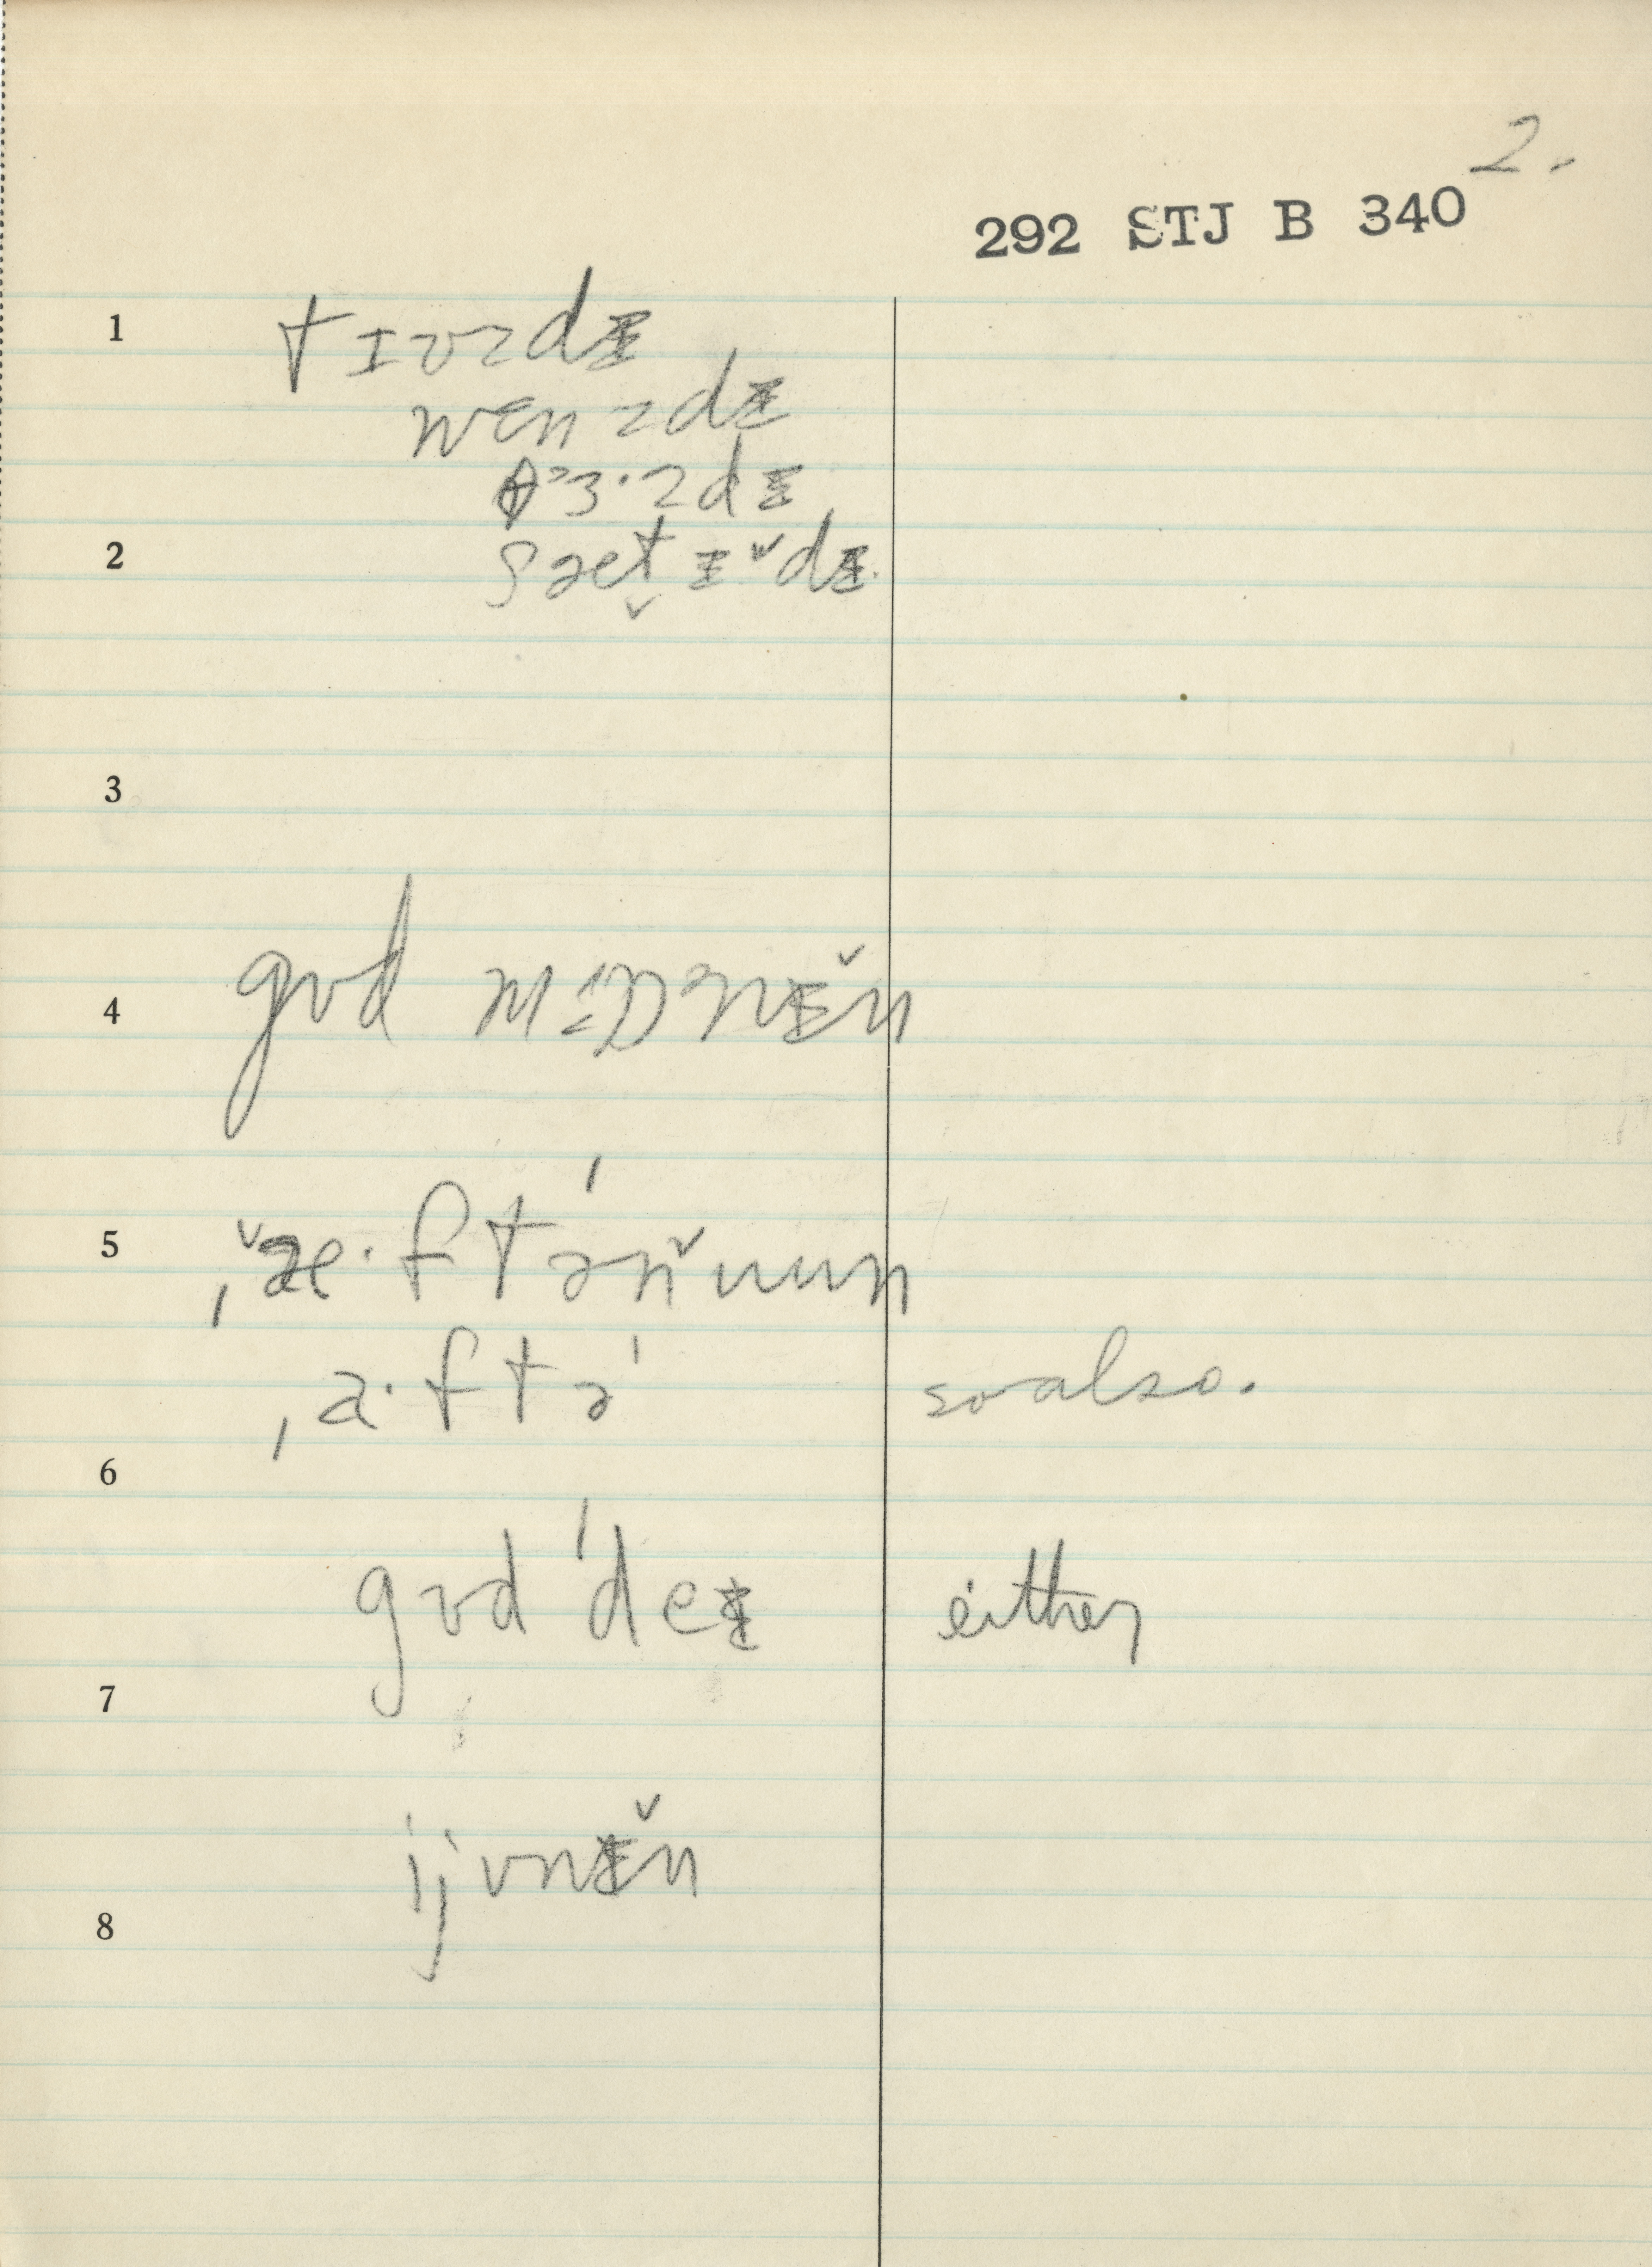 2.
292 STJ B 340
1 tɪʊzdɪ
wɛnzdɪ
θɜ·zdɪ
2 sæt̬ɪ̵ ̌dɪ
3
4 gʊd mɒnɪ̆n
5 ˌæ·ftəˈnuun
ˌa·ftəˈ so also.
6
gʊd ˈdeɪ either
7
ijvnɪ̆n
8